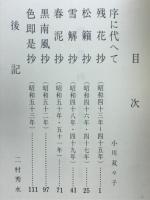 目次
序に代へて 小川双々子
残花抄 (昭和四十三年―四十五年) 1
松籟抄 (昭和四十六年・四十七年) 25
雪解抄 (昭和四十八年・四十九年) 43
春泥抄 (昭和五十年・五十一年) 71
黒南風抄 (昭和五十二年) 97
色即是抄 (昭和五十三年) 111
後記 二村秀水